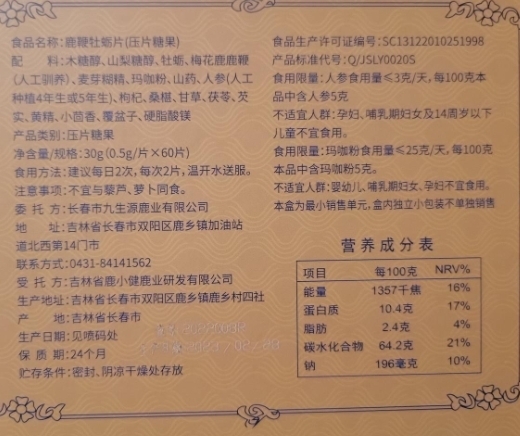 食品名称:鹿鞭牡蛎片(压片糖果)
配 料:木糖醇、山梨糖醇、牡蛎、梅花鹿鹿鞭
(人工驯养)、麦芽糊精、玛咖粉、山药、人参(人工
种植4年生或5年生)、枸杞、桑椹、甘草、茯苓、芡
实、黄精、小茴香、覆盆子、硬脂酸镁
产品类别:压片糖果
净含量/规格:30g(0.5g/片×60片)
食用方法:建议每日2次,每次2片,温开水送服。
注意事项:不宜与藜芦、萝卜同食。
委 托 方:长春市九生源鹿业有限公司
地 址:吉林省长春市双阳区鹿乡镇加油站
道北西第14门市
联系方式:0431-84141562
受 托 方:吉林省鹿小健鹿业研发有限公司
生产地址:吉林省长春市双阳区鹿乡镇鹿乡村四社
产 地:吉林省长春市
生产日期:见喷码处
保 质 期:24个月
贮存条件:密封、阴凉干燥处存放
食品生产许可证编号:SC13122010251998
产品标准代号:Q/JSLY0020S
食用限量:人参食用量≤3克/天,每100克本
品中含人参5克
不适宜人群:孕妇、哺乳期妇女及14周岁以下
儿童不宜食用。
食用限量:玛咖粉食用量≤25克/天,每100克
本品中含玛咖粉5克。
不适宜人群:婴幼儿、哺乳期妇女、孕妇不宜食用。
本盒为最小销售单元,盒内独立小包装不单独销售
营养成分表
项目 每100克 NRV%
能量 1357千焦 16%
蛋白质 10.4克 17%
脂肪 2.4克 4%
碳水化合物 64.2克 21%
钠 196毫克 10%